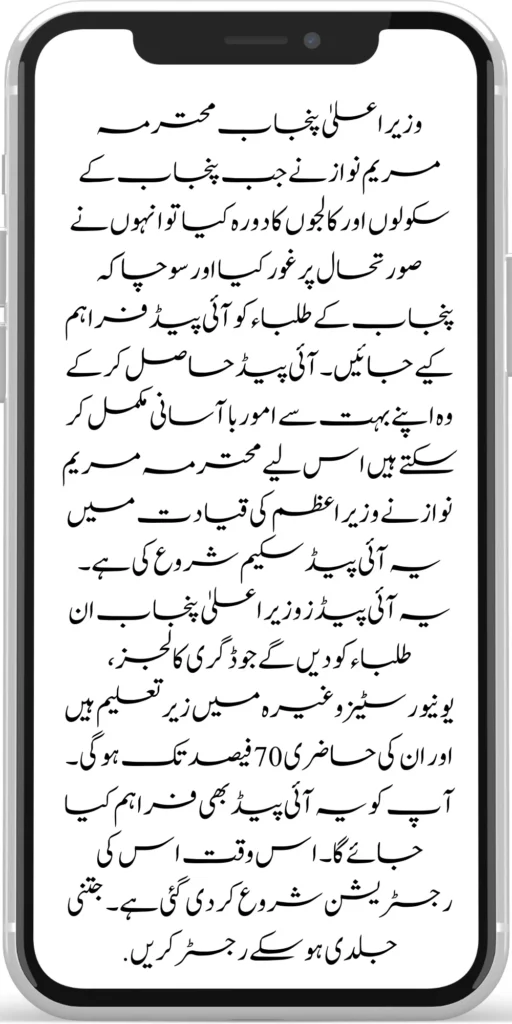 وزیر اعلیٰ پنجاب محترمہ
مریم نواز نے جب پنجاب کے
سکولوں اور کالجوں کا دورہ کیا تو انہوں نے
صورتحال پر غور کیا اور سوچا کہ
پنجاب کے طلباء کو آئی پیڈ فراہم
کیے جائیں۔ آئی پیڈ حاصل کر کے
وہ اپنے بہت سے امور باآسانی مکمل کر
سکتے ہیں اس لیے محترمہ مریم
نواز نے وزیر اعظم کی قیادت میں
یہ آئی پیڈ سکیم شروع کی ہے۔
یہ آئی پیڈز وزیر اعلیٰ پنجاب ان
طلباء کو دیں گے جو ڈگری کالجز،
یونیورسٹیز وغیرہ میں زیر تعلیم ہیں
اور ان کی حاضری 70 فیصد تک ہو گی۔
آپ کو یہ آئی پیڈ بھی فراہم کیا
جائے گا۔ اس وقت اس کی
رجسٹریشن شروع کر دی گئی ہے۔ جتنی
جلدی ہو سکے رجسٹر کریں.